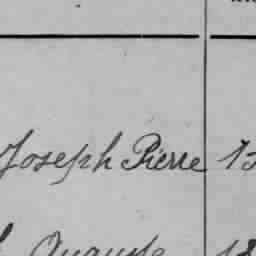 Joseph Pierre
Auguste 18